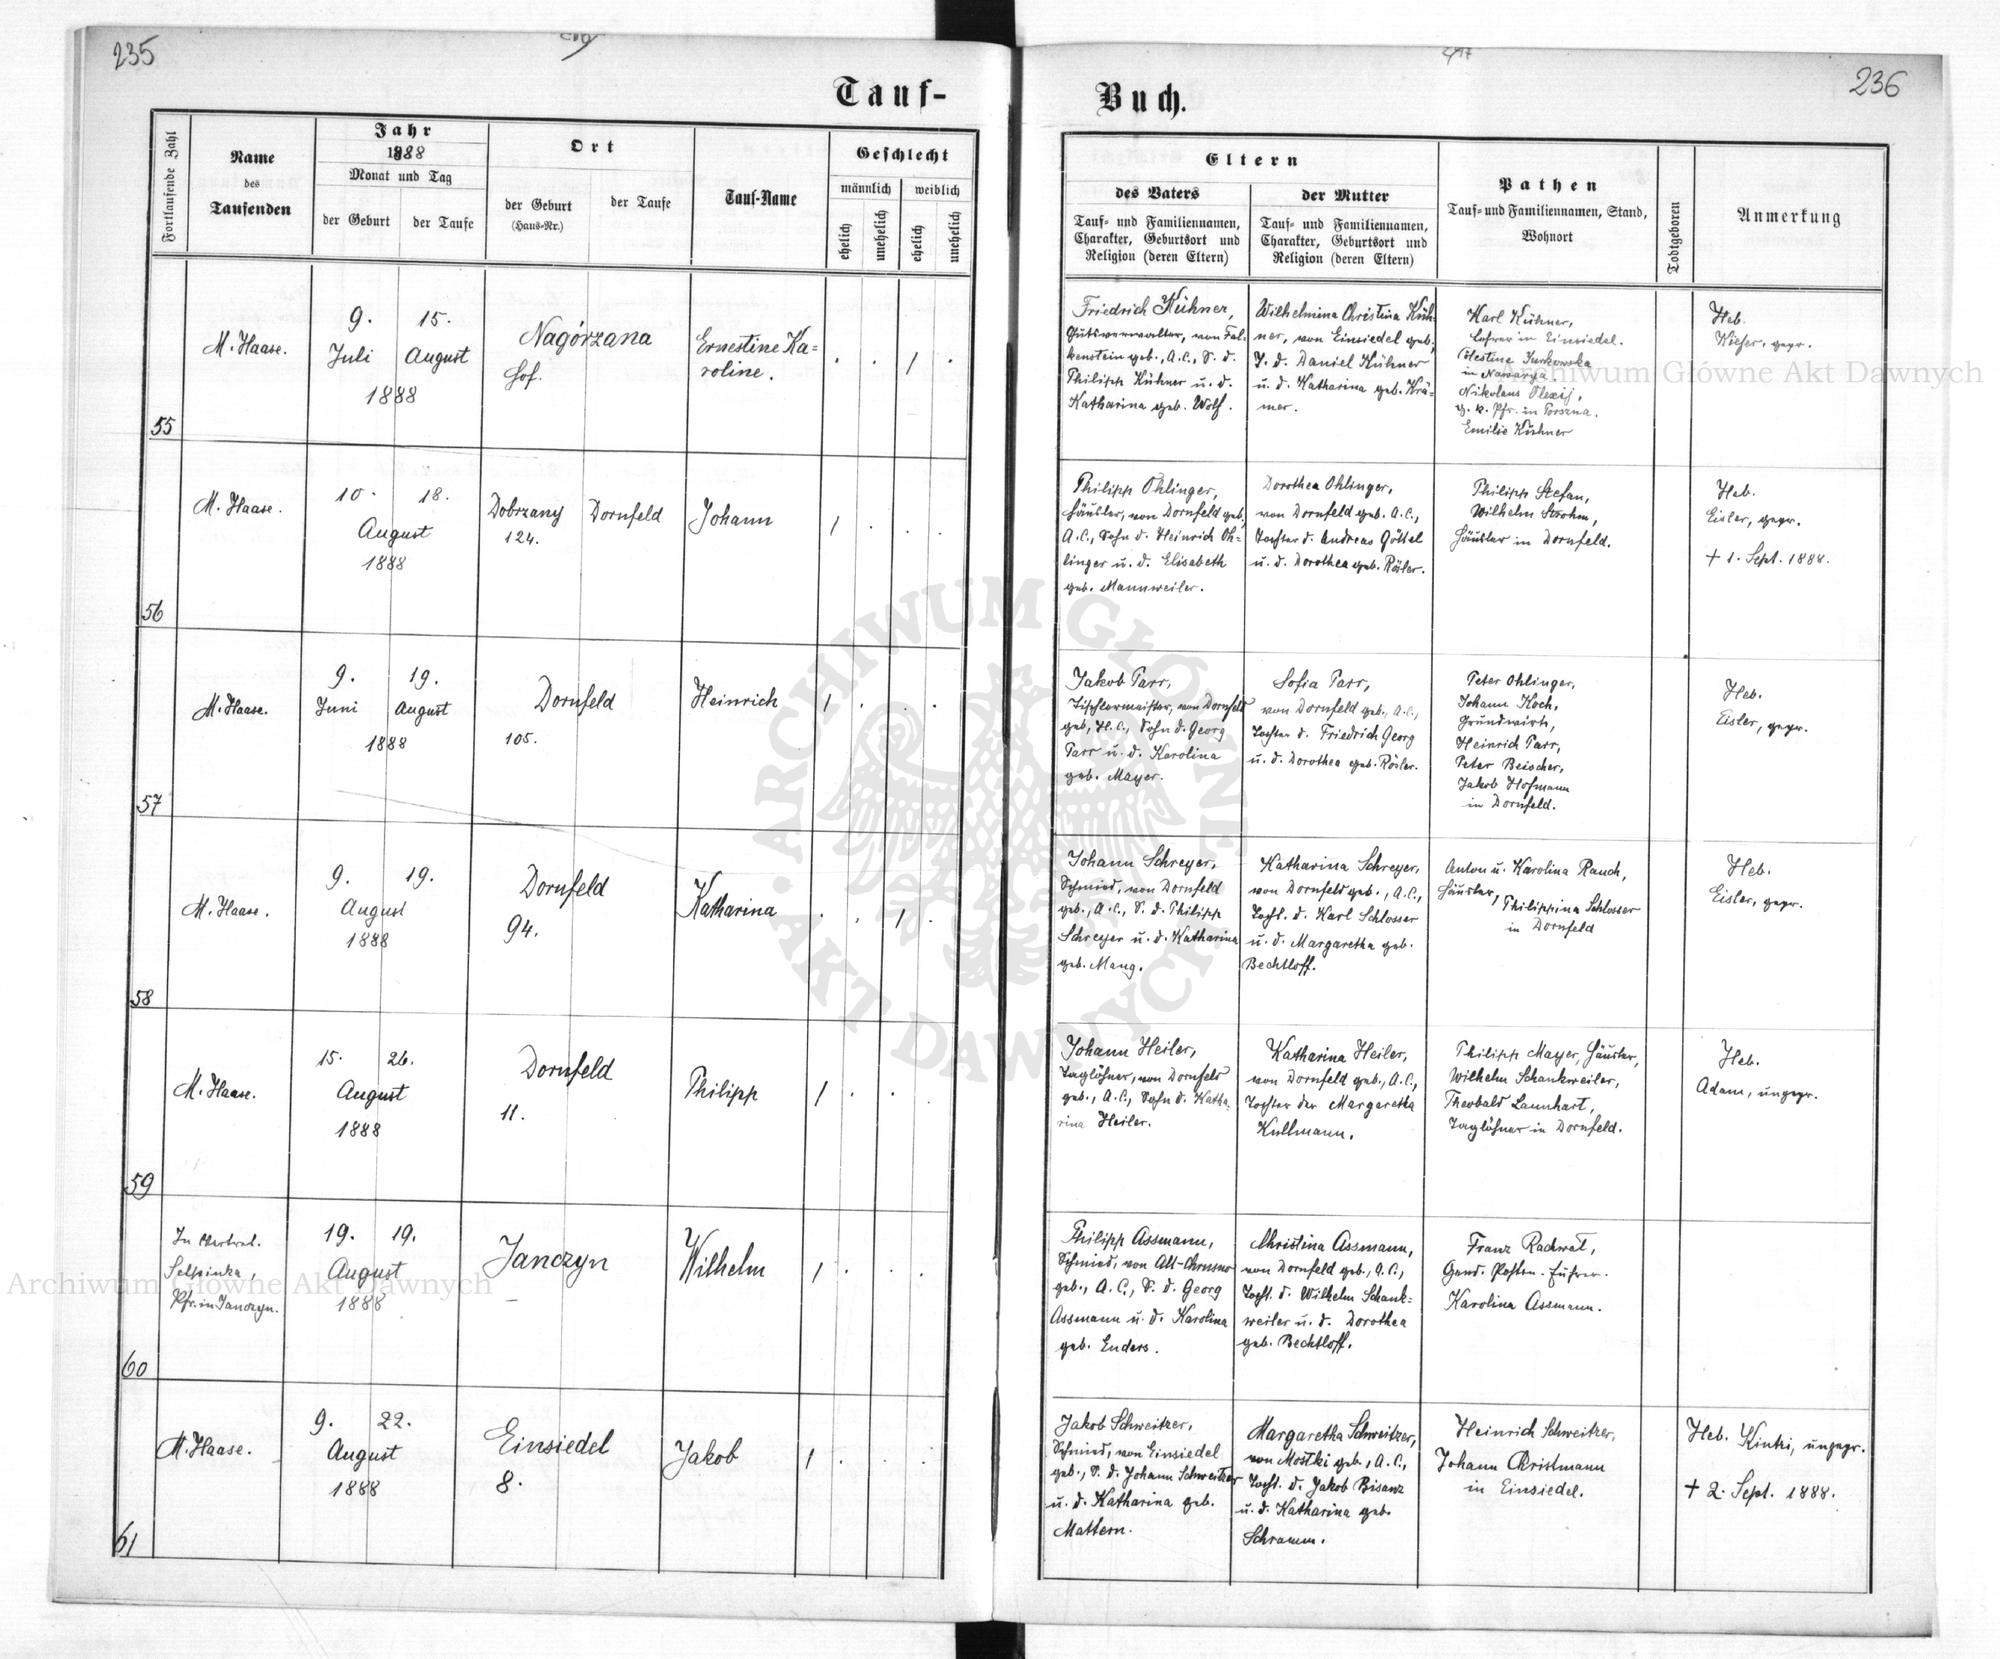 235
Tauf-
Fortlaufende Zahl
Name
des
Taufenden
Jahr
1888
Monat und Tag
der Geburt
der Taufe
Ort
der Geburt
(Haus-Nr.)
der Taufe
Tauf-Name
Geschlecht
männlich
weiblich
ehelich
unehelich
ehelich
unehelich
55
M. Haase.
9. 15.
Juli August
1888
Nagórzana
Hof.
Ernestine Ka=
roline.
56
M. Haase.
10. 18.
August
1888
Dobrzany
124.
Dornfeld
Johann
57
M. Haase.
9. 19.
Juni August
1888
Dornfeld
105.
Heinrich
58
M. Haase.
9. 19.
August
1888
Dornfeld
94.
Katharina
59
M. Haase.
15. 26.
August
1888
Dornfeld
11.
Philipp
60
In
Selpinka,
Pfr. in Janczyn.
19. 19.
August
1888
Janczyn
Wilhelm
61
M. Haase.
9. 22.
August
1888
Einsiedel
8.
Jakob
236
Buch.
Eltern
des Vaters
Tauf- und Familiennamen,
Charakter, Geburtsort und
Religion (deren Eltern)
der Mutter
Tauf- und Familiennamen,
Charakter, Geburtsort und
Religion (deren Eltern)
Pathen
Tauf- und Familiennamen, Stand,
Wohnort
Todtgeboren
Anmerkung
Friedrich Kühner,
Gutsverwalter, von Fal=
kenstein geb., A.C., S. d.
Philipp Kühner u. d.
Katharina geb. Wolf.
Wilhelmina Christina Küh=
ner, von Einsiedel geb.,
T. d. Daniel Kühner
u. d. Katharina geb. Krä=
mer.
Karl Kühner,
Lehrer in Einsiedel.
in Nawarya
Nikolaus Olexij,
g. k. Pfr. in Porszna.
Emilie Kühner
Heb.
Kiefer, gepr.
Philipp Ohlinger,
Häusler, von Dornfeld geb.,
A.C., Sohn d. Heinrich Oh=
linger u. d. Elisabeth
geb. Mannweiler.
Dorothea Ohlinger,
von Dornfeld geb. A.C.,
Tochter d. Andreas Göttel
u. d. Dorothea geb. Rösler.
Philipp Stefan,
Wilhelm Strohm,
Häusler in Dornfeld.
Heb.
Eisler, gepr.
+ 1. Sept. 1888.
Jakob Parr,
Tischlermeister, von Dornfeld
geb., H.C., Sohn d. Georg
Parr u. d. Karolina
geb. Mayer.
Sofia Parr,
von Dornfeld geb., A.C.,
Tochter d. Friedrich Georg
u. d. Dorothea geb. Rösler.
Peter Ohlinger,
Johann Koch,
Grundwirth,
Heinrich Parr,
Peter Beischer,
Jakob Hofmann
in Dornfeld.
Heb.
Eisler, gepr.
Johann Schreyer,
Schmied, von Dornfeld
geb., A.C., S. d. Philipp
Schreyer u. d. Katharina
geb. Mang.
Katharina Schreyer,
von Dornfeld geb., A.C.,
Tocht. d. Karl Schlosser
u. d. Margaretha geb.
Bechtloff.
Anton u. Karolina Rauch,
Häusler,
Philippina Schlosser
in Dornfeld
Heb.
Eisler, gepr.
Johann Heiler,
Taglöhner, von Dornfeld
geb., A.C., Sohn d. Katha=
rina Heiler.
Katharina Heiler,
von Dornfeld geb., A.C.,
Tochter der Margaretha
Kullmann.
Philipp Mayer, Häusler,
Wilhelm Schankweiler,
Theobald Launhart,
Taglöhner in Dornfeld.
Heb.
Adam, ungepr.
Philipp Assmann,
Schmied, von Alt-Chrusno
geb., A.C., S. d. Georg
Assmann u. d. Karolina
geb. Enders.
Christina Assmann,
von Dornfeld geb., A.C.,
Tocht. d. Wilhelm Schank=
weiler u. d. Dorothea
geb. Bechtloff.
Franz Rachwał,
Gend. Posten-Führer.
Karolina Assmann.
Jakob Schweitzer,
Schmied, von Einsiedel
geb., S. d. Johann Schweitzer
u. d. Katharina geb.
Mattern.
Margaretha Schweitzer,
von Mostki geb., A.C.,
Tocht. d. Jakob Bisanz
u. d. Katharina geb.
Schramm.
Heinrich Schweitzer,
Johann Christmann
in Einsiedel.
Heb. Kintzi, ungepr.
+ 2. Sept. 1888.
Archiwum Główne Akt Dawnych
Archiwum Główne Akt Dawnych
ARCHIWUM GŁÓWNE
AKT DAWNYCH